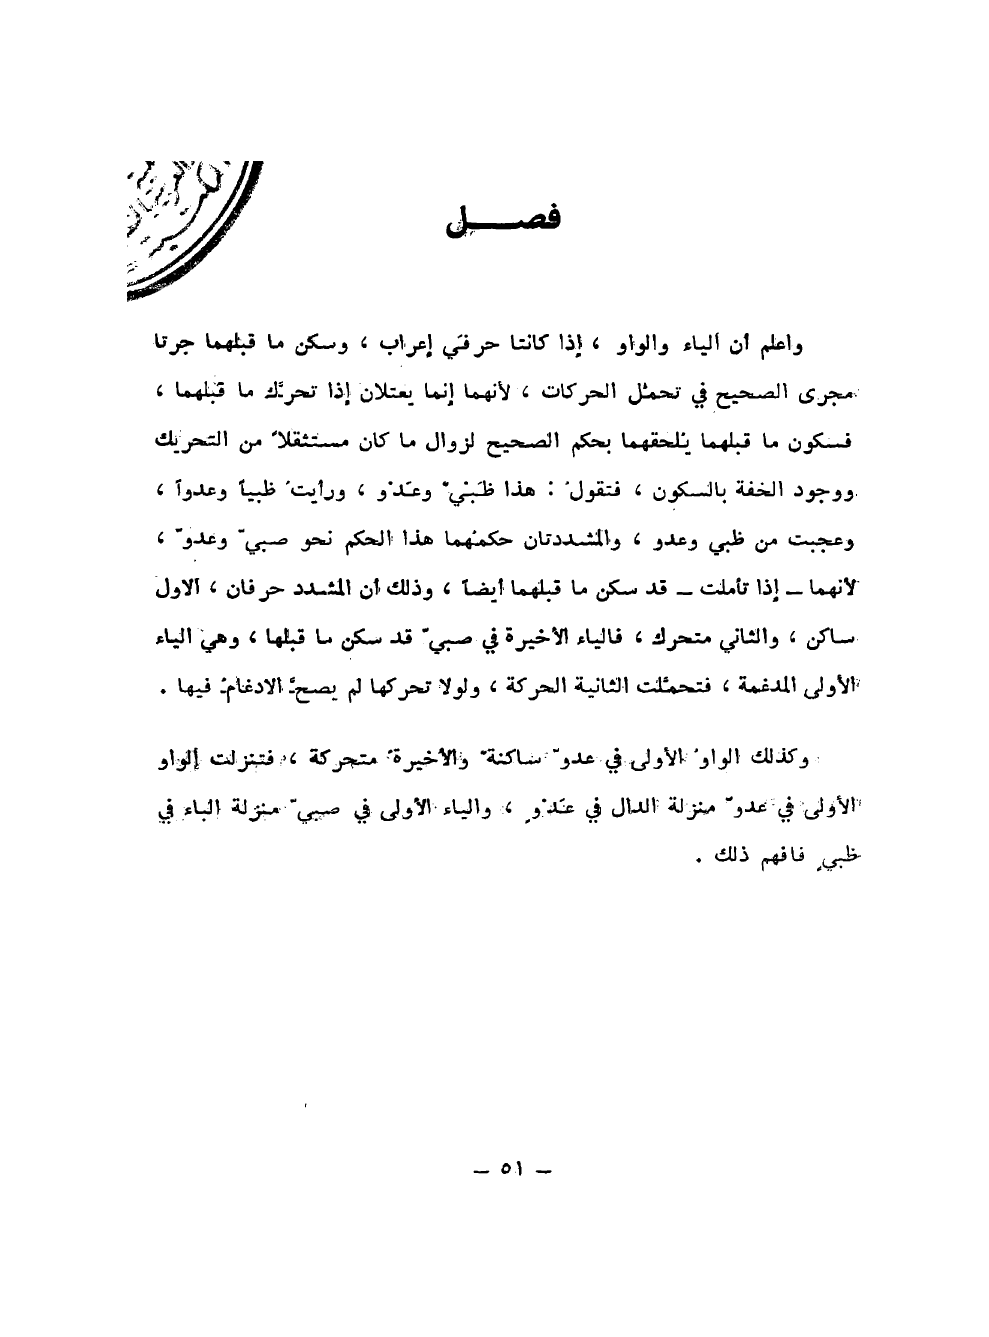 فصـــــل
واعلم أن الياء والواو ، إذا كانتا حرفَي إعراب ، وسكن ما قبلهما جرتا
مجرى الصحيح في تحمثل الحركات ، لأنهما إنما يعتلان إذا تحرَّك ما قبلهما ،
فسكون ما قبلهما يُلحقهما بحكم الصحيح لزوال ما كان مستثقلاً من التحريك
ووجود الخفة بالسكون ، فتقولُ : هذا ظَبْيٌ وغَدْو ، ورأيتُ ظبياً وغدواً ،
وعجبت من ظبي وغدو ، والمُشددتان حكمُهما هذا الحكم نحو صبيّ وعدوّ ،
لأنهما ــ إذا تأملت ــ قد سكن ما قبلهما أيضاً ، وذلك أن المشدد حرفان ، الاول
ساكن ، والثاني متحرك ، فالياء الأخيرة في صبيّ قد سكن ما قبلها ، وهي الياء
الأولى المدغمة ، فتحمَّلت الثانية الحركة ، ولولا تحركها لم يصحَّ الادغامُ فيها .
وكذلك الواوُ الأولى في عدوّ ساكنةٌ والأخيرةُ متحركة ، فتنزلت الواو
الأولى في عدوّ منزلة الدال في غَدْوٍ ، والياء الأولى في صبيّ منزلة الباء في
ظبيٍ فافهم ذلك .
ـ ٥١ ـ